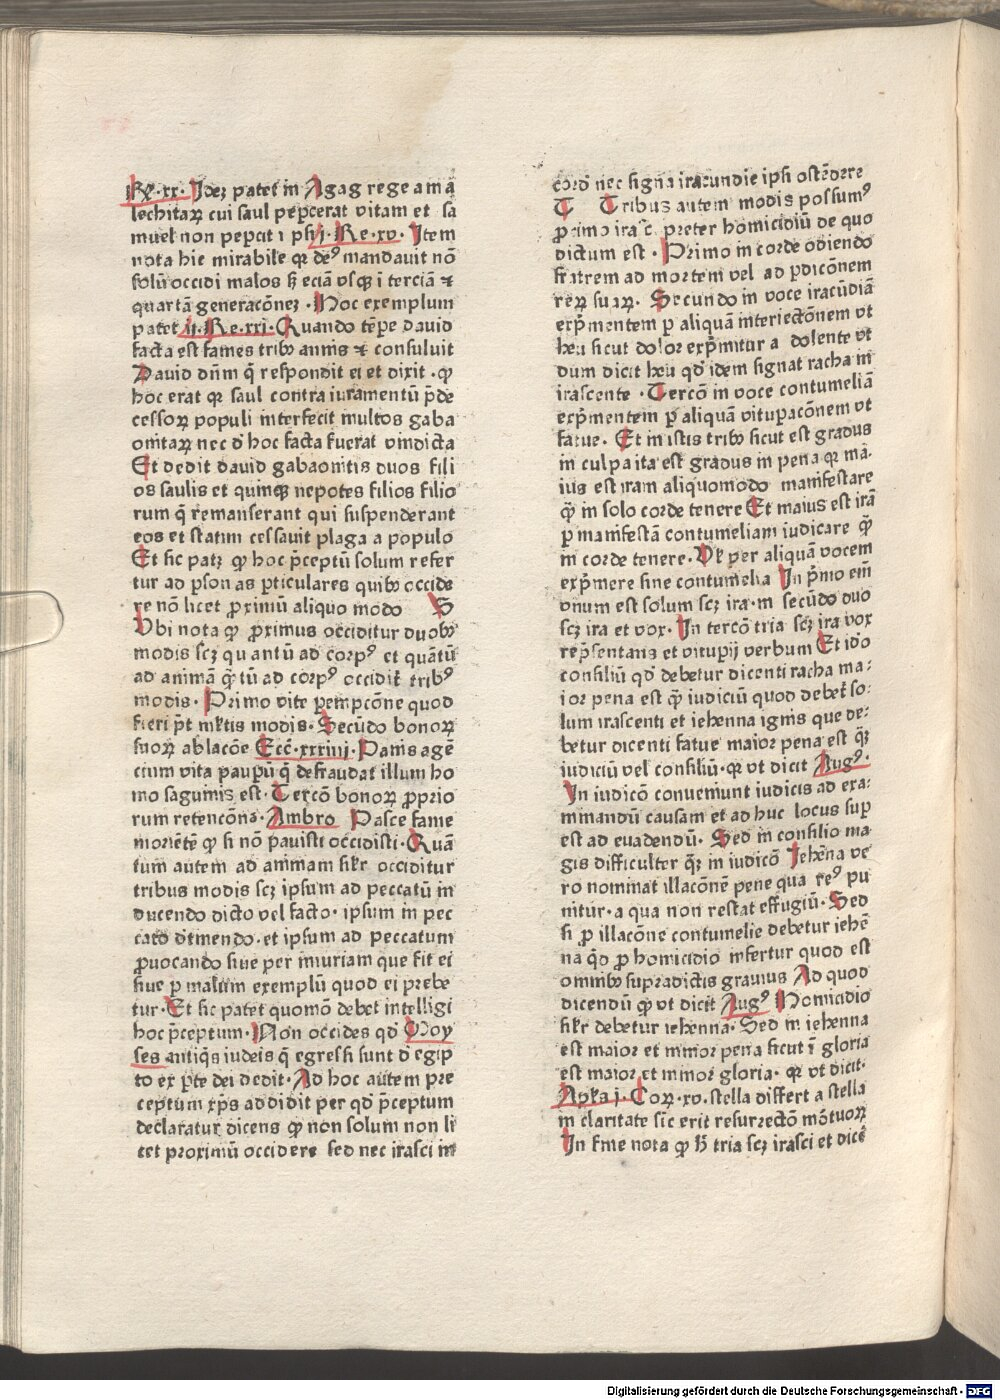 Re·xx· Idez patet in Agag rege ama
lechitaꝝ cui saul pepercerat vitam et sa
muel non pepcit i·Re·xv· Item
nota hic mirabile qꝛ deꝰ mandauit nō
solū occidi malos sꝫ eciā vsqꝫ ī terciā ⁊
quartā generacōneꝫ · Hoc exemplum
patet ii·Re·xxi· Quando tēpe dauid
facta est fames tribꝫ annis ⁊ consuluit
Dauid dn̄m q̄ respondit ei et dixit · ꝙ
hoc erat qꝛ saul contra iuramentū p̄de
cessoꝝ populi interfecit multos gaba
onitaꝝ nec d̄ hoc facta fuerat vindicta
Et dedit dauid gabaonitis duos fili
os saulis et quinqꝫ nepotes filios filio
rum q̄ remanserant qui suspenderant
eos et statim cessauit plaga a populo
Et sic patꝫ ꝙ hoc p̄ceptū solum refer
tur ad ꝑsonas ꝑticulares quibꝫ occide
re nō licet ꝓximū aliquo modo
Vbi nota ꝙ ꝓximus occiditur duobꝫ
modis scꝫ quantū ad corpꝰ et quātū
ad animā q̄tū ad corpꝰ occidit tribꝰ
modis · Primo vite ꝑempcōne quod
fieri p̄t mltis modis · Secūdo bonoꝝ
suoꝝ ablacōe Ecc̄·xxxiiij· Panis agē
cium vita pauꝑū q̄ defraudat illum ho
mo saguinis est · Tercō bonoꝝ ꝓprio
rum retencōna · Ambro Pasce fame
moriētē ꝙ si nō pauisti occidisti · Quā
tum autem ad animam silr occiditur
tribus modis scꝫ ipsum ad peccatū in
ducendo dicto vel facto · ipsum in pec
cato d̄tinendo · et ipsum ad peccatum
ꝓuocando siue per iniuriam que fit ei
siue ꝑ malum exemplū quod ei prebe
tur · Et sic patet quomō debet intelligi
hoc p̄ceptum · Non occides qd̄ Moy
ses antiqͥs iudeis q̄ egressi sunt d̄ egip
to ex ꝑte dei dedit · Ad hoc autem pre
ceptum xp̄s addidit per qd̄ p̄ceptum
declaratur dicens ꝙ non solum non li
cet proximū occidere sed nec irasci in
cord̄ nec signa iracundie ipsi ostēdere
Tribus autem modis possumꝰ
ꝓximo irasc̄ preter homicidiū de quo
dictum est · Primo in corde odiendo
fratrem ad mortem vel ad ꝑdicōnem
reꝝ suaꝝ · Secundo in voce iracūdiā
exp̄mentem ꝑ aliquā interiectōnem vt
heu sicut dolor exp̄mitur a dolente vt
dum dicit heu qd̄ idem signat racha in
irascente · Tercō in voce contumeliā
exp̄mentem ꝑ aliquā vituꝑacōnem vt
fatue · Et in istis tribꝫ sicut est gradus
in culpa ita est gradus in pena qꝛ ma⸗
ius est iram aliquomodo manifestare
q̄ in solo corde tenere Et maius est irā
ꝑ manifestā contumeliam iudicare q̄
in corde tenere · Vl per aliquā vocem
exp̄mere sine contumelia In p̄mo em̄
vnum est solum scꝫ ira · in secūdo duo
scꝫ ira et vox · In tercō tria scꝫ ira vox
rep̄sentans et vituꝑij verbum Et idō
consiliū qd̄ debetur dicenti racha ma⸗
ior pena est q̄ iudiciū quod debet so⸗
lum irascenti et iehenna ignis que de⸗
betur dicenti fatue maior pena est q̄
iudiciū vel consiliū · qꝛ vt dicit Augꝰ ·
In iudicō conueniunt iudicis ad exa⸗
minandū causam et ad huc locus suꝑ
est ad euadendū · Sed in consilio ma
gis difficulter q̄ in iudicō Iehēna ve
ro nominat illacōnē pene qua reꝰ pu
nitur · a qua non restat effugiū · Sed
si ꝓ illacōne contumelie debetur iehē
na qd̄ ꝓ homicidio infertur quod est
omnibꝫ supradictis grauius Ad quod
dicendū ꝙ vt dicit Augꝰ Homicidio
silr debetur iehenna · Sed in iehenna
est maior et minor pena sicut ī gloria
est maior et minor gloria · qꝛ vt dicit·
Aplꝰ i· Coꝝ·xv· stella differt a stella
in claritate sic erit resurrectō mōtuoꝝ
In fine nota ꝙ h̄ tria scꝫ irasci et dicē